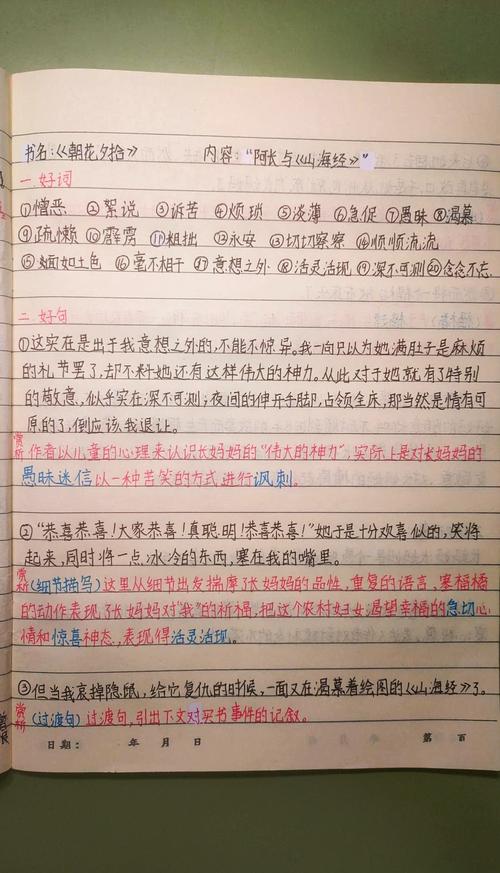 书名:《朝花夕拾》 内容:"阿长与《山海经》"
一.好词
①憎恶 ②絮说 ③诉苦 ④烦琐 ⑤淡薄 ⑥急促 ⑦愚昧 ⑧渴慕
⑨疏懒 ⑩霹雳 ⑪粗拙 ⑫永安 ⑬切切察察 ⑭顺顺流流
⑮面如土色 ⑯毫不相干 ⑰意想之外 ⑱活灵活现 ⑲深不可测 ⑳念念不忘
二.好句
①这实在是出于我意想之外的,不能不惊异。我一向只以为她满肚子是麻烦
的礼节罢了,却不料她还有这样伟大的神力。从此对于她就有了特别
的敬意,似乎实在深不可测;夜间的伸开手脚,占领全床,那当然是情有可
原的了,倒应该我退让。
赏析 作者以儿童的心理来认识长妈妈的"伟大的神力",实际上是对长妈妈的
愚昧迷信以一种苦笑的方式进行讽刺。
②"恭喜恭喜!大家恭喜!真聪明!恭喜恭喜!"她于是十分欢喜似的,笑将
起来,同时将一点冰冷的东西,塞在我的嘴里。
赏析(细节描写)这里从细节出发揣摩了长妈妈的品性,重复的语言,塞福橘
的动作表现了长妈妈对"我"的祈福,把这个农村妇女渴望幸福的急切心
情和惊喜神态,表现得活灵活现。
③但当我哀掉隐鼠,给它复仇的时候,一面又在渴慕着绘图的《山海经》了。
赏析(过渡句)过渡句,引出下文对买书事件的记叙。
日期: 年 月 日 第 页